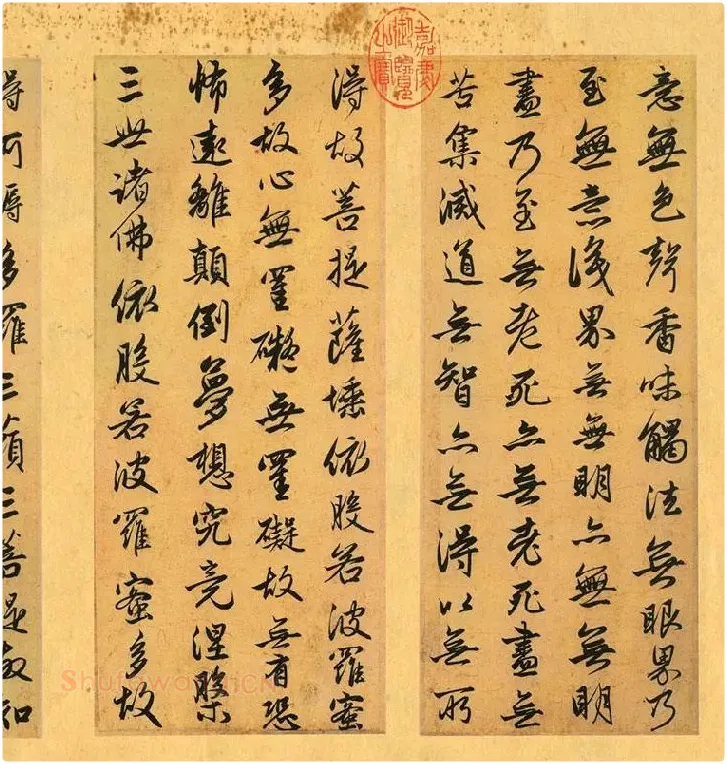 意無色聲香味觸法無眼界乃
至無意識界無無明亦無無明
盡乃至無老死亦無老死盡無
苦集滅道無智亦無得以無所
得故菩提薩埵依般若波羅蜜
多故心無罣礙無罣礙故無有恐
怖遠離顛倒夢想究竟涅槃
三世諸佛依般若波羅蜜多故
得阿耨多羅三藐三菩提故知
嘉慶御覽之寶